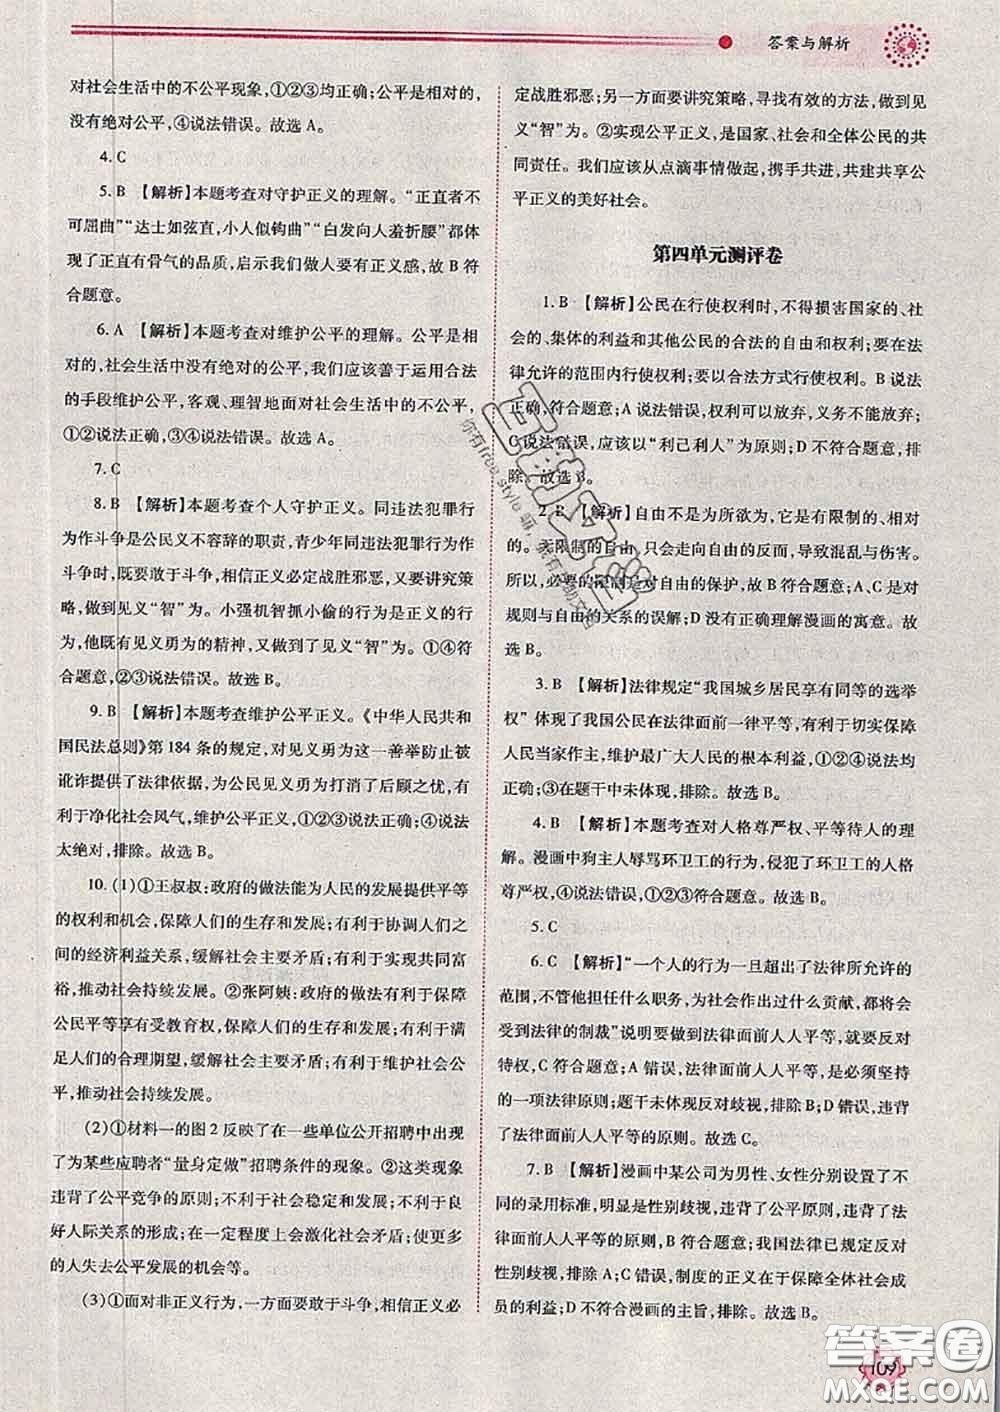 答案与解析
对社会生活中的不公平现象,①②③均正确;公平是相对的,
没有绝对公平,④说法错误。故选A。
4. C
5. B 【解析】本题考查对守护正义的理解。“正直者不
可屈曲”“达士如弦直,小人似钩曲”“白发向人羞折腰”都体
现了正直有骨气的品质,启示我们做人要有正义感,故B符
合题意。
6. A 【解析】本题考查对维护公平的理解。公平是相
对的,社会生活中没有绝对的公平,我们应该善于运用合法
的手段维护公平,客观、理智地面对社会生活中的不公平,
①②说法正确,③④说法错误。故选A。
7. C
8. B 【解析】本题考查个人守护正义。同违法犯罪行为
作斗争是公民义不容辞的职责,青少年同违法犯罪行为作
斗争时,既要敢于斗争,相信正义必定战胜邪恶,又要讲究策
略,做到见义“智”为。小强机智抓小偷的行为是正义的行
为,他既有见义勇为的精神,又做到了见义“智”为。①④符
合题意,②③说法错误。故选B。
9. B 【解析】本题考查维护公平正义。《中华人民共和
国民法总则》第184条的规定,对见义勇为这一善举防止被
讹诈提供了法律依据,为公民见义勇为打消了后顾之忧,有
利于净化社会风气,维护公平正义,①②③说法正确;④说法
太绝对,排除。故选B。
10. (1)①王叔叔:政府的做法能为人民的发展提供平等
的权利和机会,保障人们的生存和发展;有利于协调人们之
间的经济利益关系,缓解社会主要矛盾;有利于实现共同富
裕,推动社会持续发展。②张阿姨:政府的做法有利于保障
公民平等享有受教育权,保障人们的生存和发展;有利于满
足人们的合理期望,缓解社会主要矛盾;有利于维护社会公
平,推动社会持续发展。
(2)①材料一的图2反映了在一些单位公开招聘中出现
了为某些应聘者“量身定做”招聘条件的现象。②这些现象
违背了公平竞争的原则;不利于社会稳定和发展;不利于良
好人际关系的形成;在一定程度上会激化社会矛盾,使更多
的人失去公平发展的机会等。
(3)①面对非正义行为,一方面要敢于斗争,相信正义必
定战胜邪恶;另一方面要讲究策略,寻找有效的方法,做到见
义“智”为。②实现公平正义,是国家、社会和全体公民的共
同责任。我们应该从点滴事情做起,携手共进,共建共享公
平正义的美好社会。
第四单元测评卷
1. B 【解析】公民在行使权利时,不得损害国家的、社
会的、集体的利益和其他公民的合法的自由和权利;要在法
律允许的范围内行使权利;要以合法方式行使权利。B说法
正确,符合题意;A说法错误,权利可以放弃,义务不能放弃;
C说法错误,应该以“利己利人”为原则;D不符合题意,排
除。故选B。
2. B 【解析】自由不是为所欲为,它是有限制的、相对
的。无限制的自由,只会走向自由的反面,导致混乱与伤害。
所以,必要的限制是对自由的保护,故B符合题意;A、C是对
规则与自由的关系的误解;D没有正确理解漫画的寓意。故
选B。
3. B 【解析】法律规定“我国城乡居民享有同等的选举
权”体现了我国公民在法律面前一律平等,有利于切实保障
人民当家作主,维护最广大人民的根本利益,①②④说法均
正确;③在题干中未体现,排除。故选B。
4. B 【解析】本题考查对人格尊严权、平等待人的理
解。漫画中狗主人辱骂环卫工的行为,侵犯了环卫工的人格
尊严权,④说法错误,①②③符合题意。故选B。
5. C
6. C 【解析】“一个人的行为一旦超出了法律所允许的
范围,不管他担任什么职务,为社会作出过什么贡献,都将会
受到法律的制裁”说明要做到法律面前人人平等,就要反对
特权,C符合题意;A错误,法律面前人人平等,是我国法律
的一项法律原则;题干未体现反对歧视,排除B;D错误,违背
了法律面前人人平等的原则。故选C。
7. B 【解析】漫画中某公司为男性、女性分别设置了不
同的录用标准,明显是性别歧视,违背了公平原则,违背了法
律面前人人平等的原则,B符合题意;我国法律已规定反对
性别歧视,排除A;C错误,制度的正义在于保障全体社会成
员的利益;D不符合漫画的主旨,排除。故选B。
109
答案圈
MXQE.COM